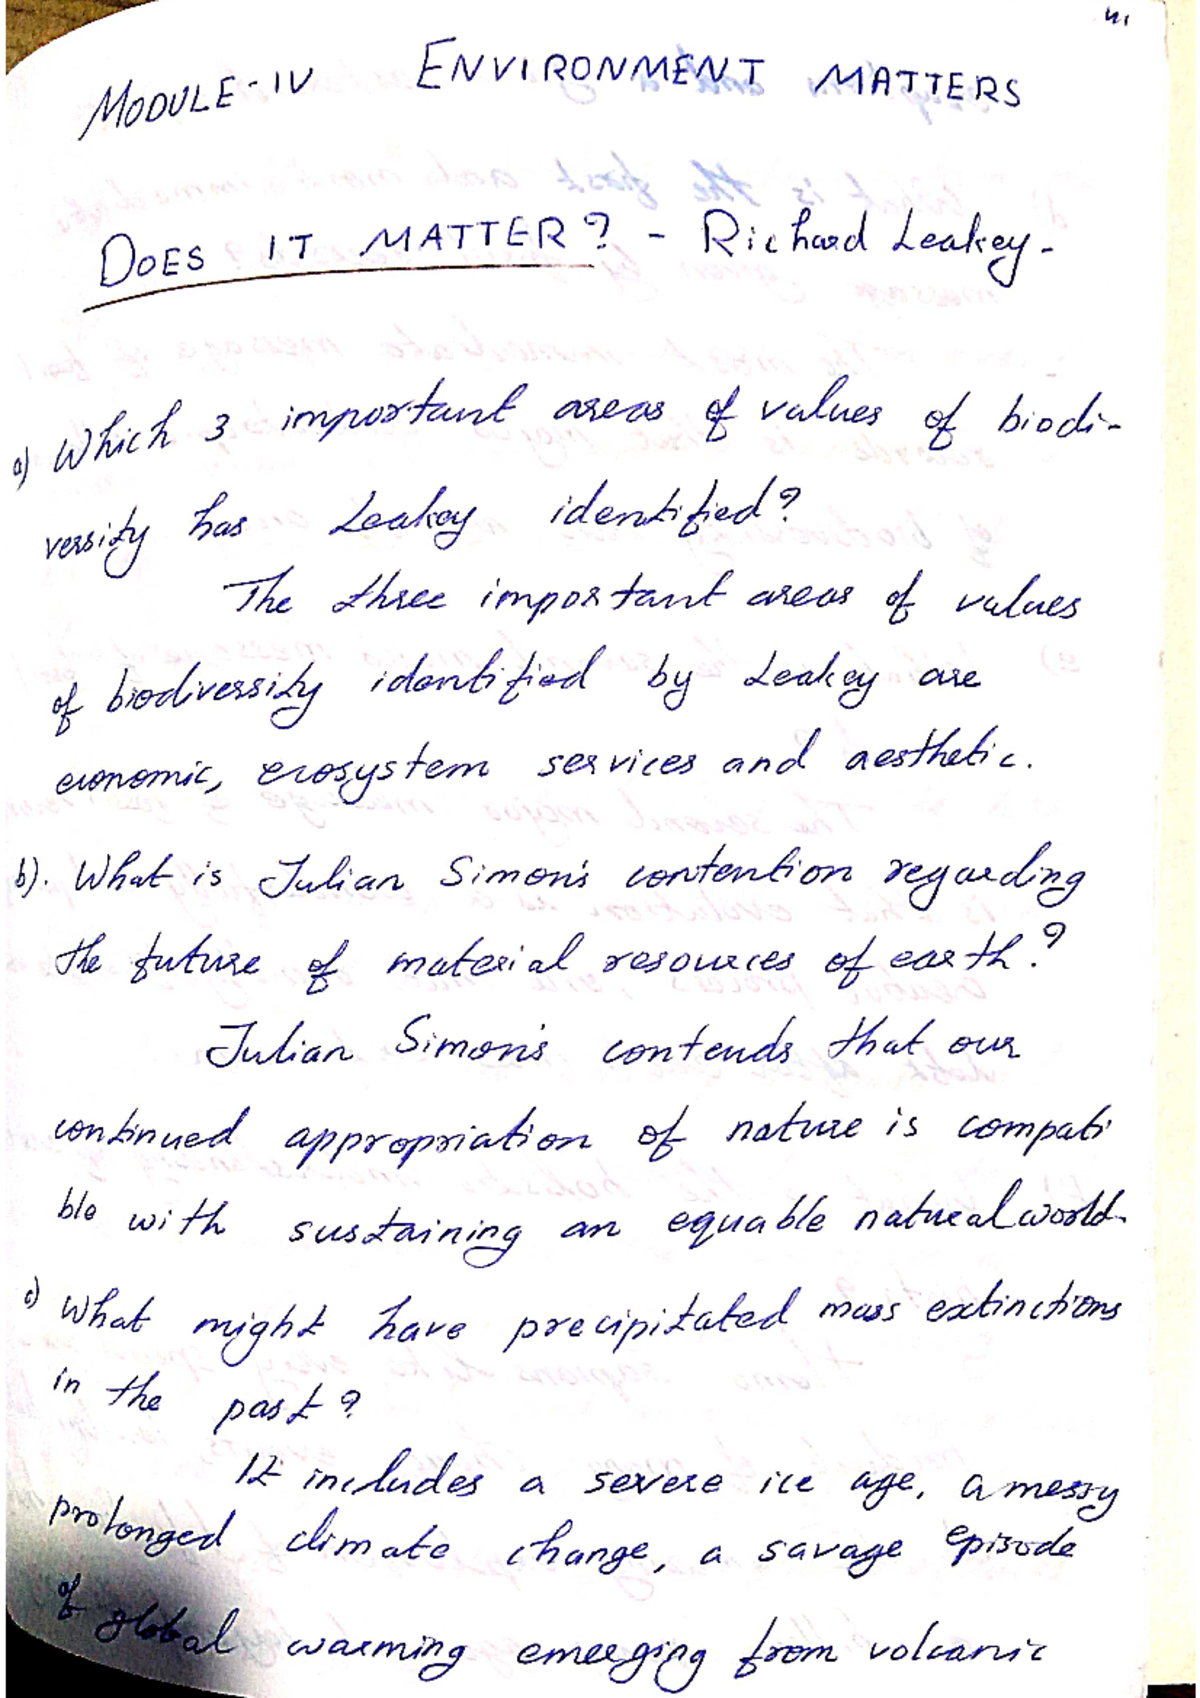 MODULE-IV ENVIRONMENT MATTERS
DOES IT MATTER? - Richard Leakey-
a) Which 3 important areas of values of biodi-
versity has Leakey identified?
The three important areas of values
of biodiversity identified by Leakey are
economic, ecosystem services and aesthetic.
b). What is Julian Simon's contention regarding
the future of material resources of earth?
Julian Simon's contends that our
continued appropriation of nature is compati
ble with sustaining an equable natural world.
c) What might have precipitated mass extinctions
in the past?
It includes a severe ice age, a messy
prolonged climate change, a savage episode
of global warming emerging from volcanic